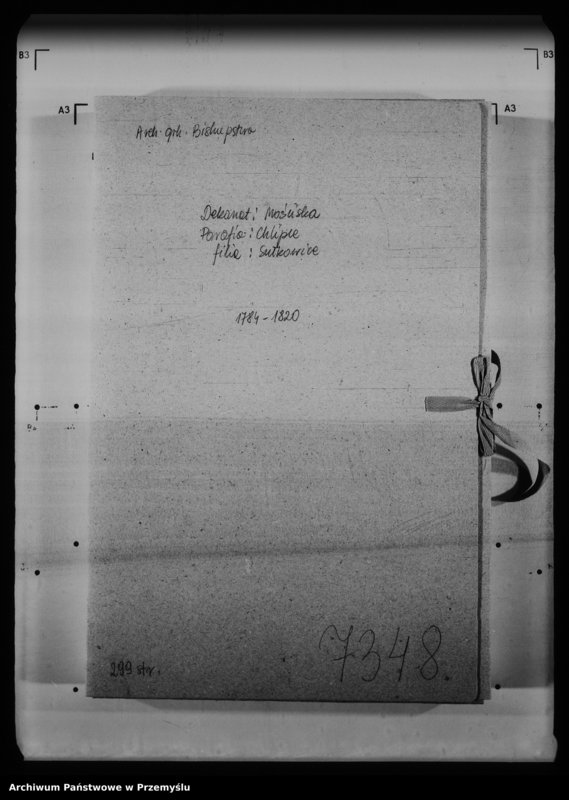 B3
B3
A3
A3
Arch. grk. Biskupstwo
Dekanat: Mościska
Parafia: Chlipie
filia: Sutkowice
1784-1820
299 str.
7348.
Archiwum Państwowe w Przemyślu